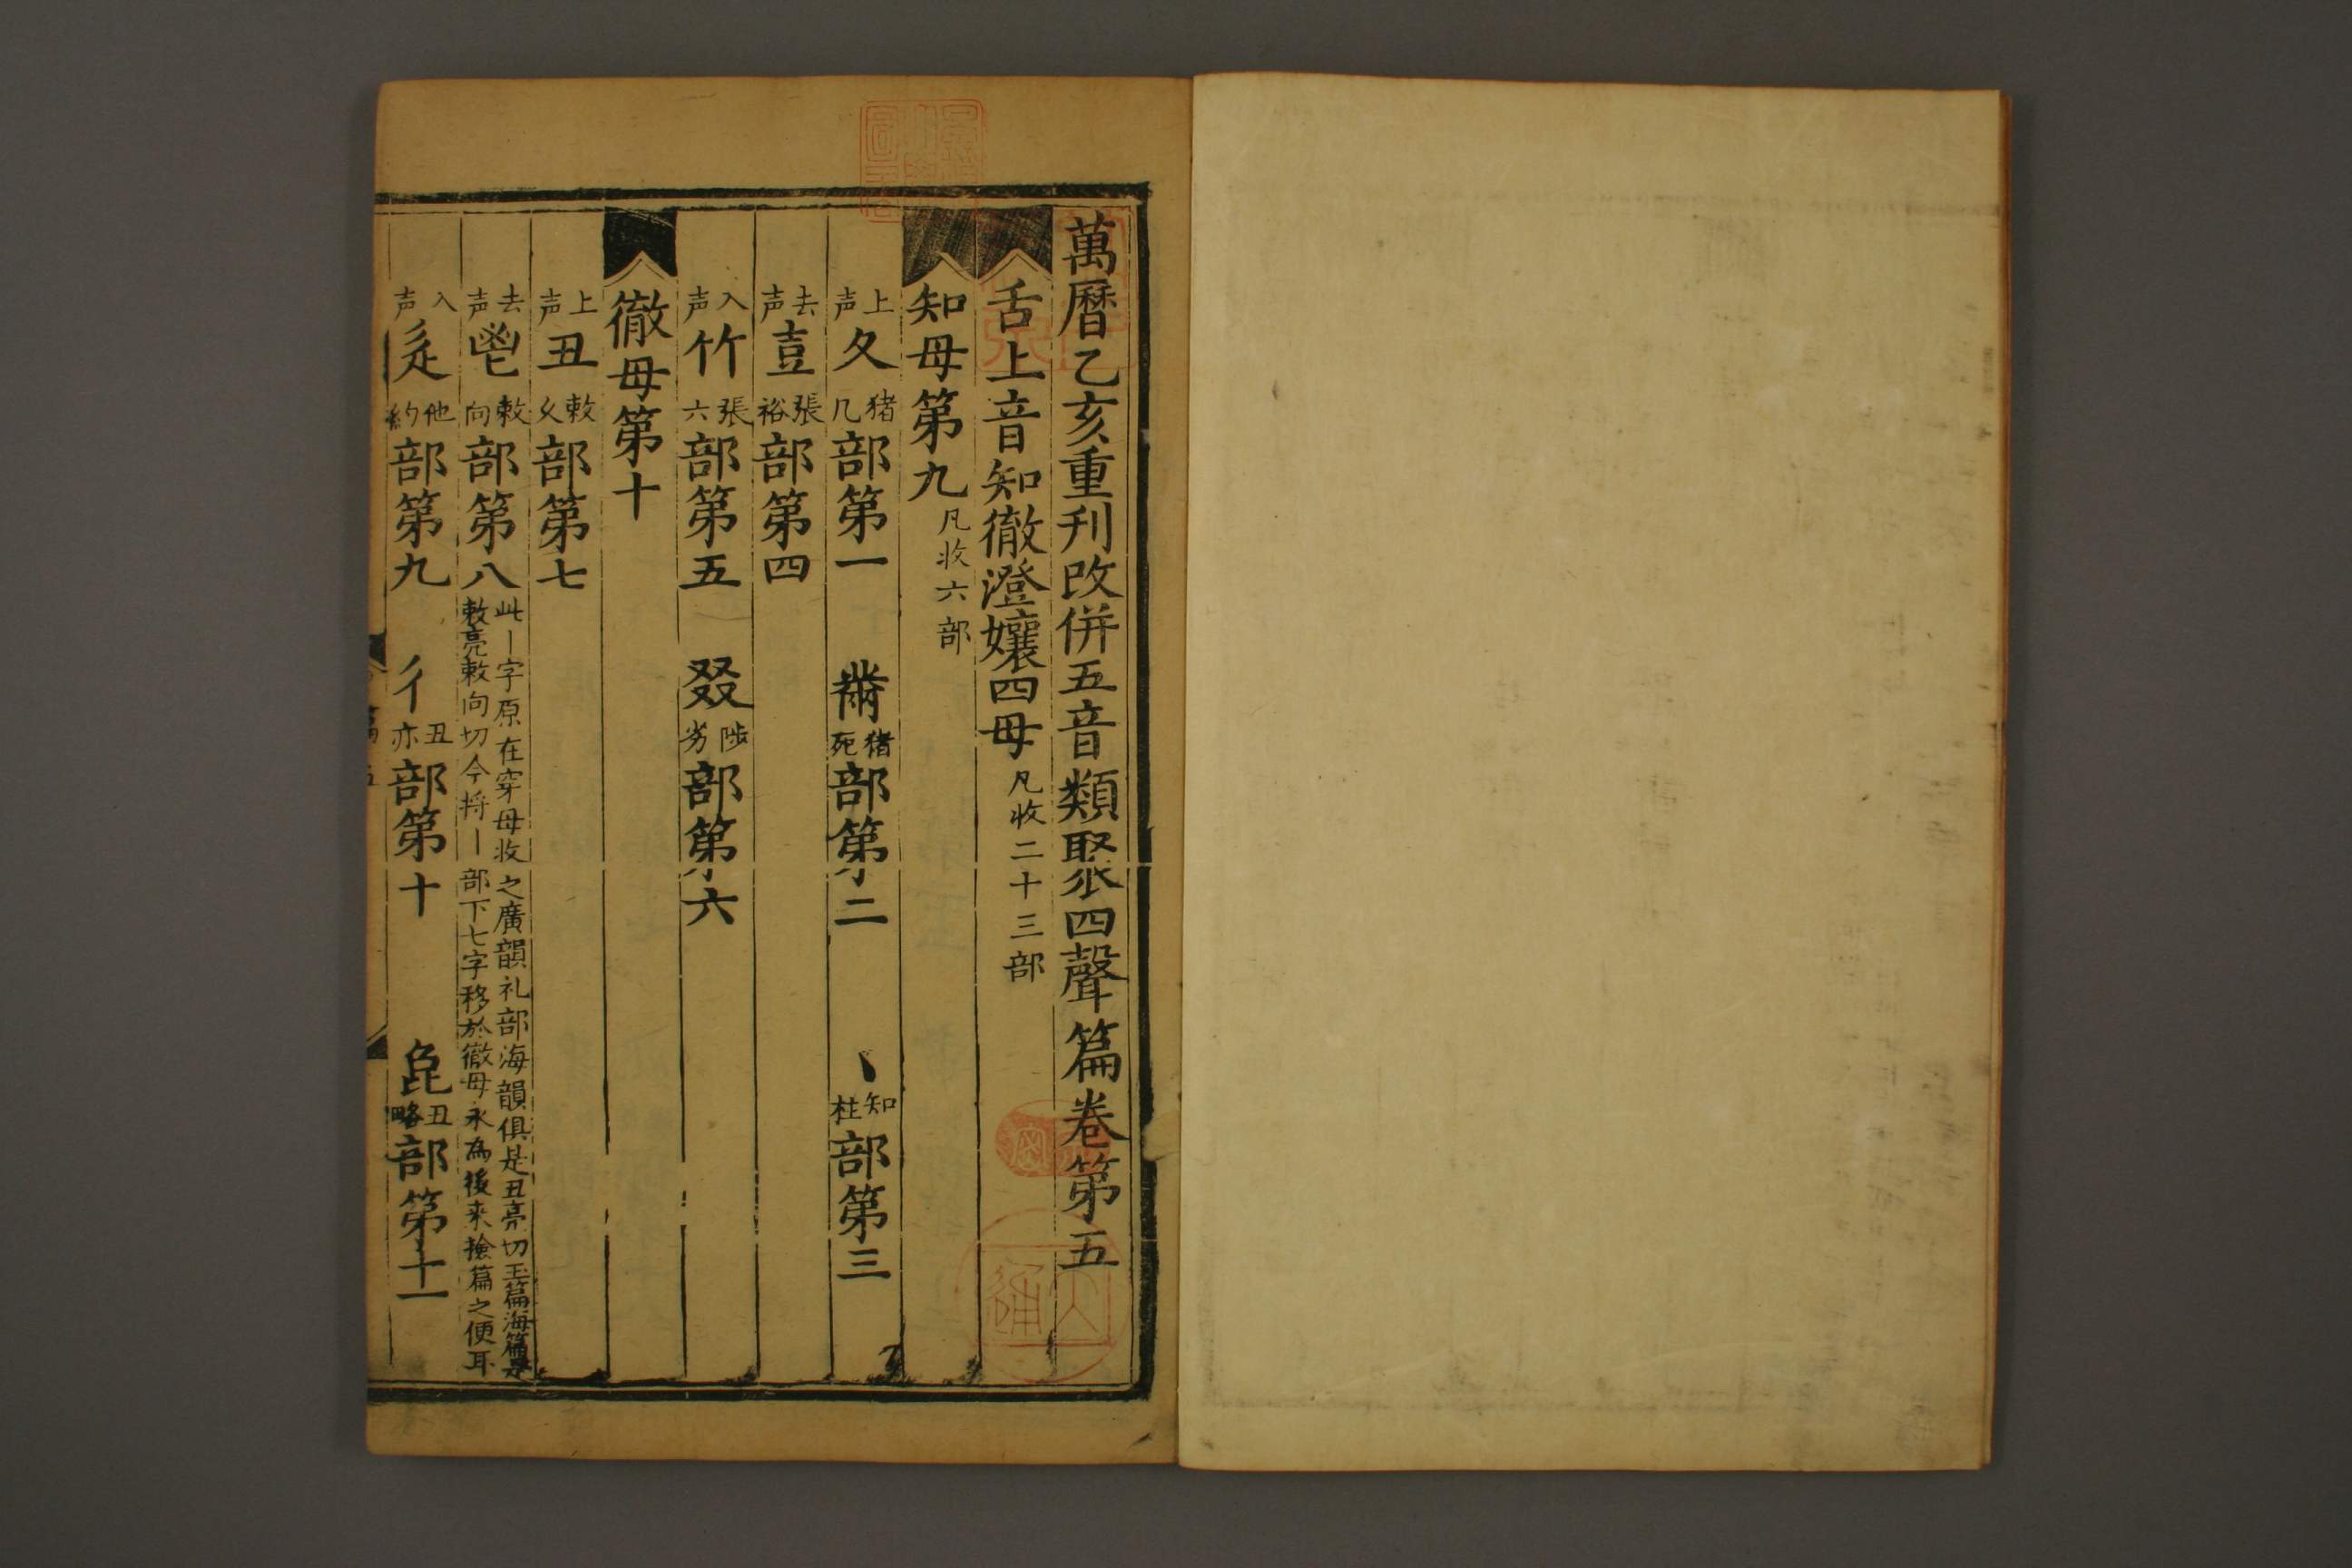 萬曆乙亥重刋改併五音類聚四聲篇卷第五
舌上音知徹澄孃四母凡收二十三部
知母第九凡收六部
上声夂猪几部第一 黹猪死部第二 丶知柱部第三
去声壴張裕部第四
入声竹張六部第五 叕陟劣部第六
徹母第十
上声丑敕久部第七
去声鬯敕向部第八此丨字原在穿母收之廣韻礼部海韻俱是丑亮切玉篇海篇是
敕亮敕向切今将丨部下七字移於徹母永為後来撿篇之便耳
入声辵他約部第九 彳丑亦部第十 㲋丑略部第十一